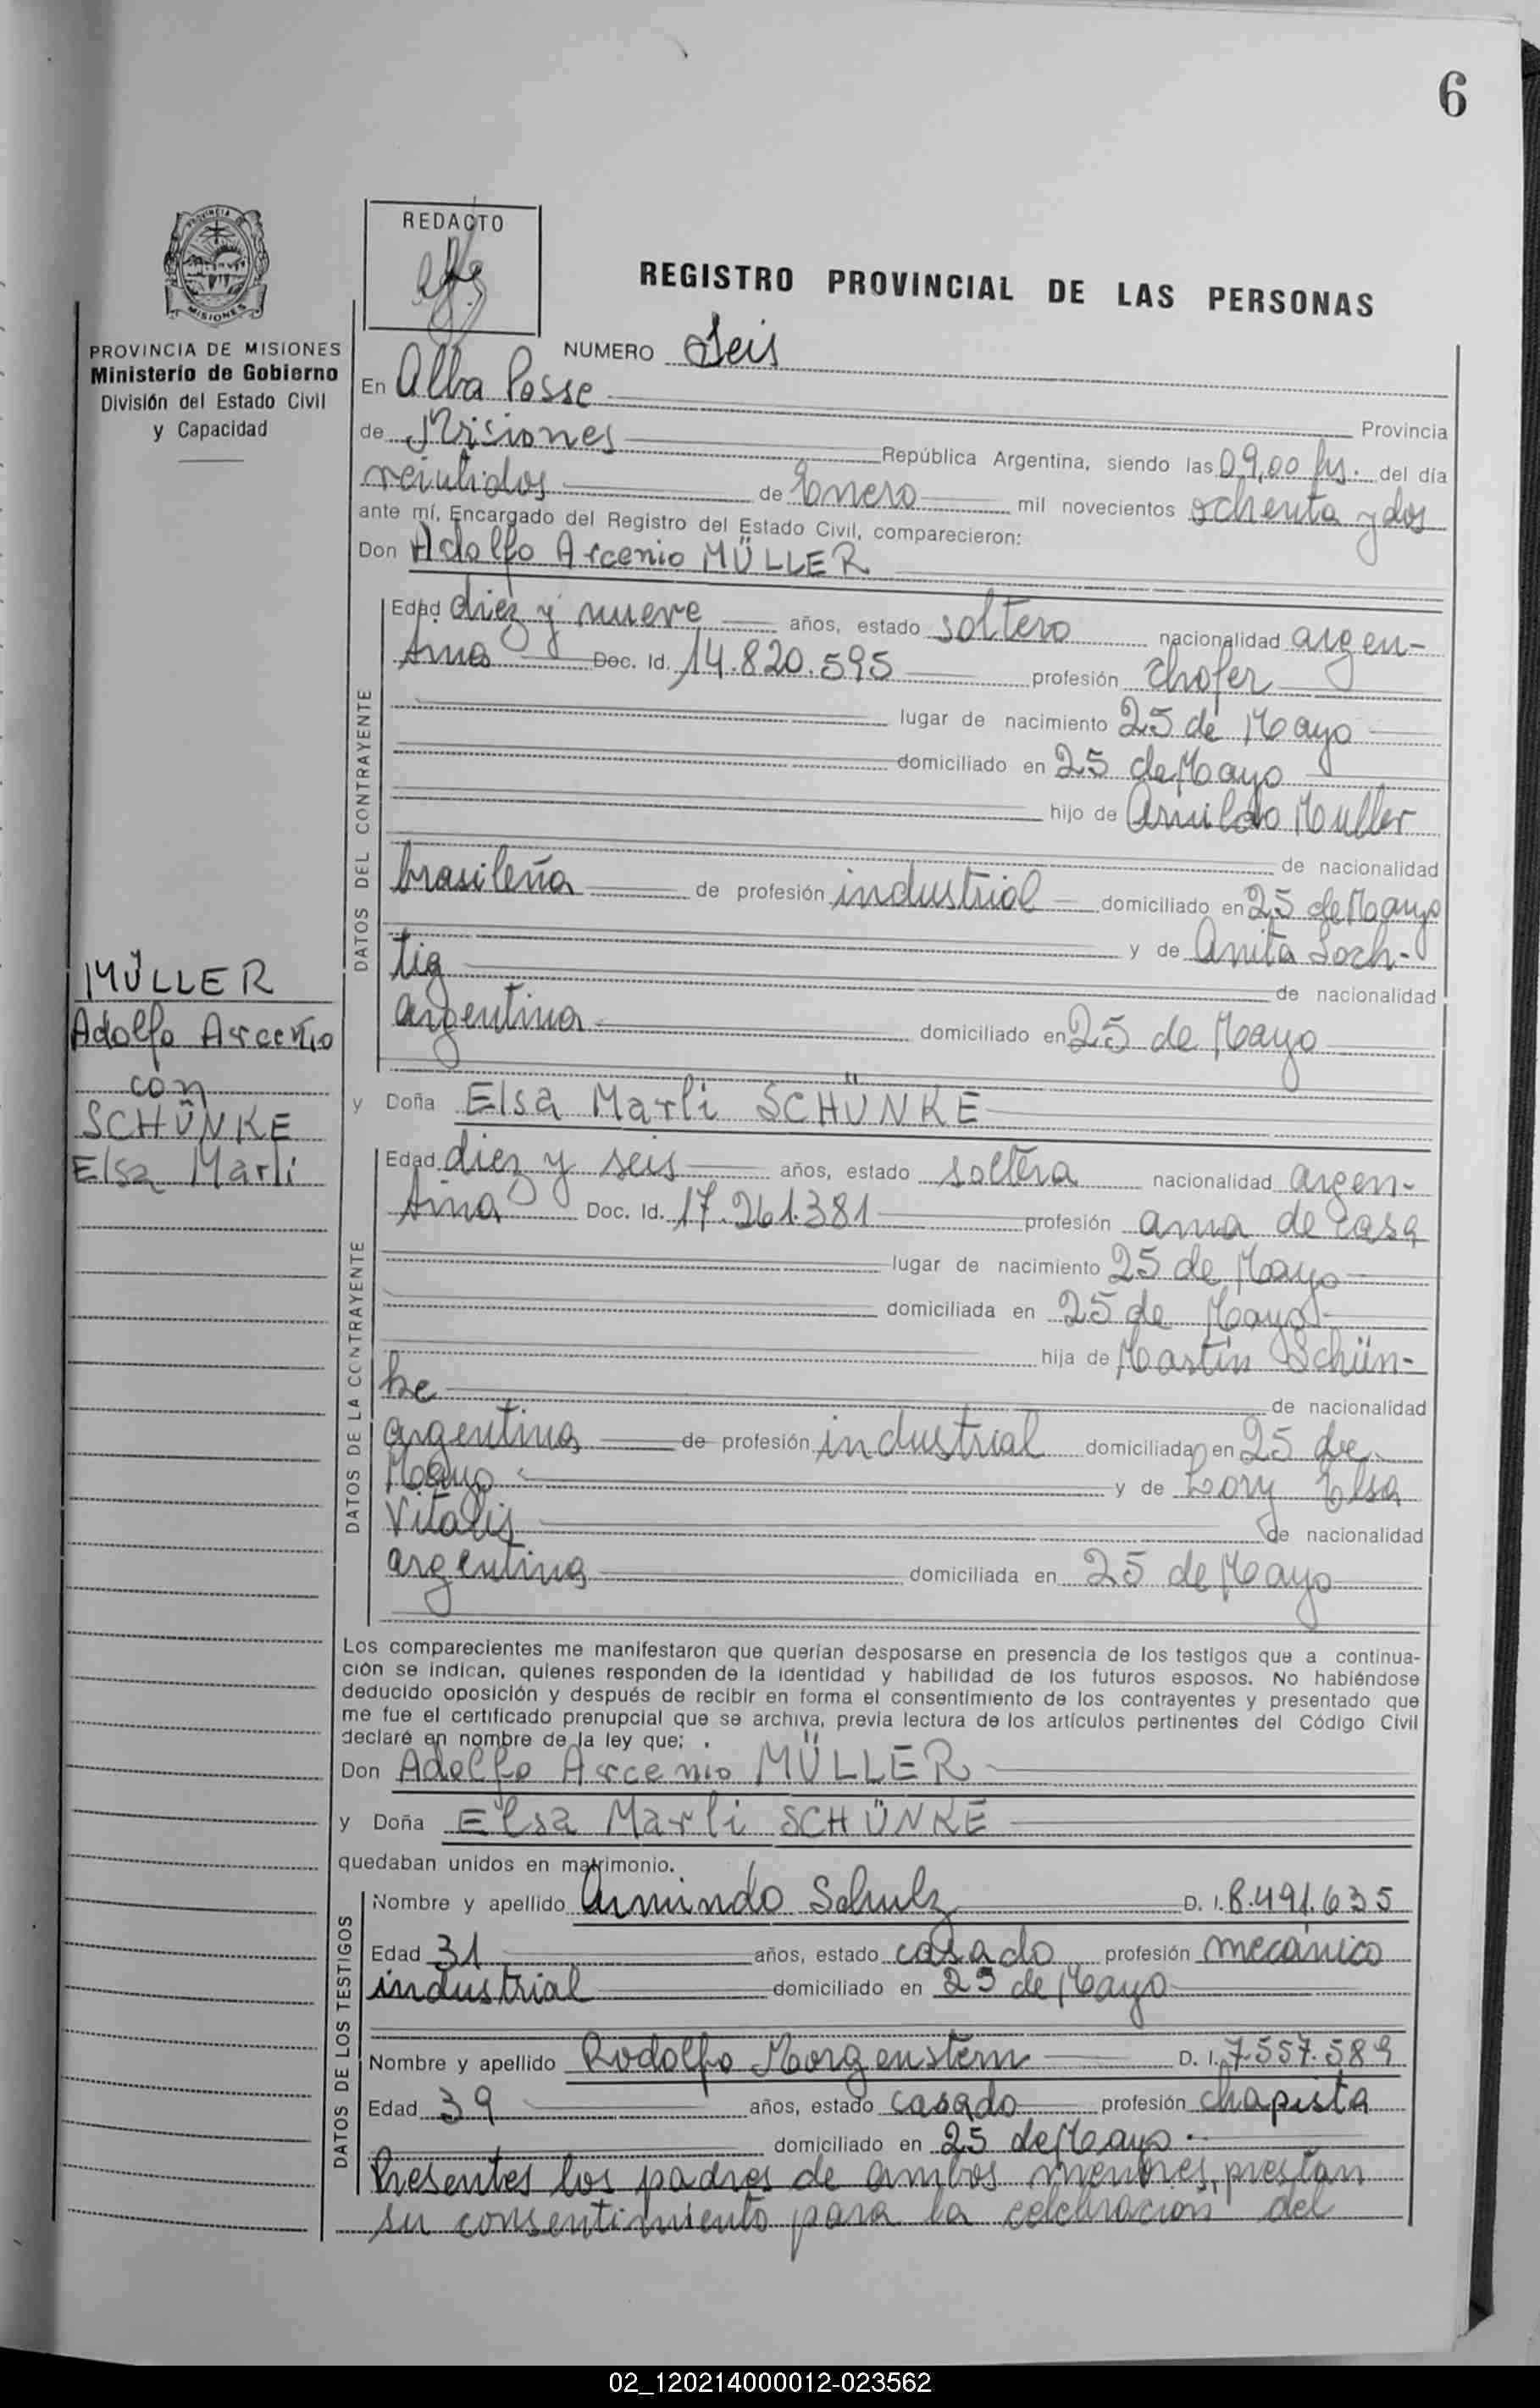 6
MISIONES
REDACTO
REGISTRO PROVINCIAL DE LAS PERSONAS
PROVINCIA DE MISIONES
Ministerio de Gobierno
División del Estado Civil
y Capacidad
NUMERO Seis
En Alba Posse
Provincia
de Misiones República Argentina, siendo las 09,00 hs. del día
veintidos de Enero mil novecientos ochenta y dos
ante mí, Encargado del Registro del Estado Civil, comparecieron:
Don Adolfo Arcenio MÜLLER
DATOS DEL CONTRAYENTE
Edad diez y nueve años, estado soltero nacionalidad argen-
tina Doc. Id. 14.820.595 profesión chofer
lugar de nacimiento 25 de Mayo
domiciliado en 25 de Mayo
hijo de Arnildo Muller
de nacionalidad
brasileña de profesión industrial domiciliado en 25 de Mayo
y de Anita Soch-
tig
de nacionalidad
argentina domiciliado en 25 de Mayo
MÜLLER
Adolfo Arcenio
con
SCHÜNKE
Elsa Marli
y Doña Elsa Marli SCHÜNKE
DATOS DE LA CONTRAYENTE
Edad diez y seis años, estado soltera nacionalidad argen-
tina Doc. Id. 17.261.381 profesión ama de casa
lugar de nacimiento 25 de Mayo
domiciliada en 25 de Mayo
hija de Martin Schün-
ke
de nacionalidad
argentina de profesión industrial domiciliada en 25 de
Mayo y de Lory Elsa
Vitalis
de nacionalidad
argentina domiciliada en 25 de Mayo
Los comparecientes me manifestaron que querían desposarse en presencia de los testigos que a continua-
ción se indican, quienes responden de la identidad y habilidad de los futuros esposos. No habiéndose
deducido oposición y después de recibir en forma el consentimiento de los contrayentes y presentado que
me fue el certificado prenupcial que se archiva, previa lectura de los artículos pertinentes del Código Civil
declaré en nombre de la ley que:
Don Adolfo Arcenio MÜLLER
y Doña Elsa Marli SCHÜNKE
quedaban unidos en matrimonio.
DATOS DE LOS TESTIGOS
Nombre y apellido Armindo Schulz D. I. 8.491.635
Edad 31 años, estado casado profesión mecánico
industrial domiciliado en 25 de Mayo
Nombre y apellido Rodolfo Morgenstern D. I. 7.557.589
Edad 39 años, estado casado profesión chapista
domiciliado en 25 de Mayo.
Presentes los padres de ambos menores, prestan
su consentimiento para la celebracion del
02_120214000012-023562